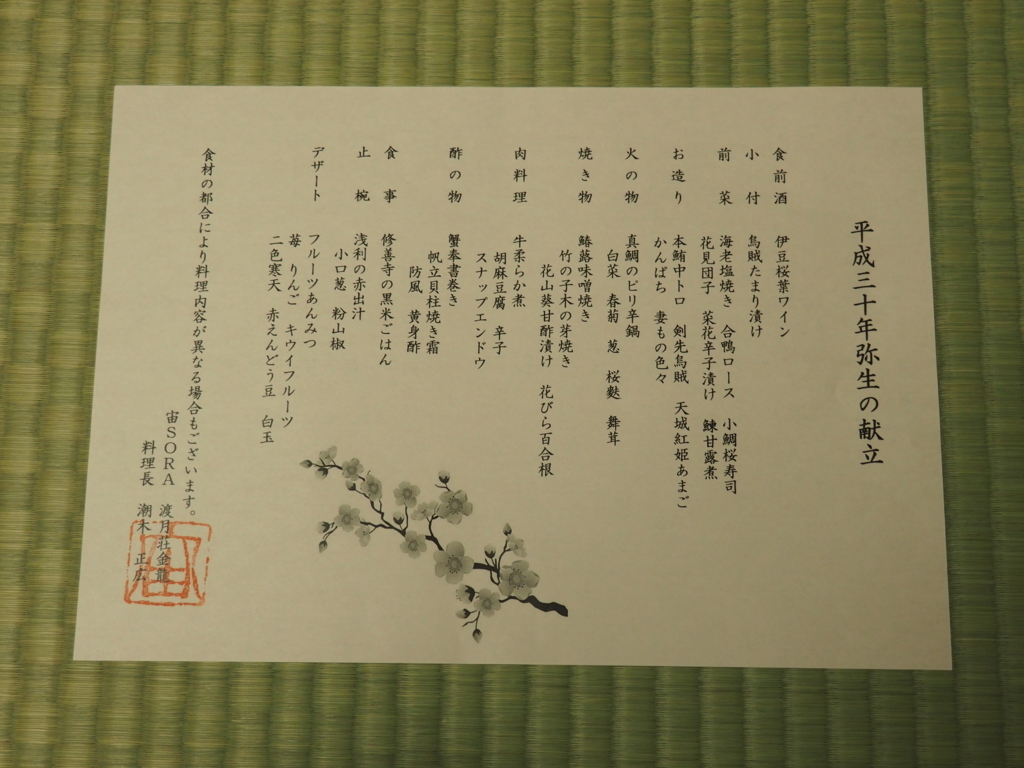 平成三十年弥生の献立
食前酒　伊豆桜葉ワイン
小付　烏賊たまり漬け
前菜　海老塩焼き　合鴨ロース　小鯛桜寿司
花見団子　菜花辛子漬け　鰊甘露煮
お造り　本鮪中トロ　剣先烏賊　天城紅姫あまご
かんぱち　妻もの色々
火の物　真鯛のピリ辛鍋
白菜　春菊　葱　桜麩　舞茸
焼き物　鰆蕗味噌焼き
竹の子木の芽焼き
花山葵甘酢漬け　花びら百合根
肉料理　牛柔らか煮
胡麻豆腐　辛子
スナップエンドウ
酢の物　蟹奉書巻き
帆立貝柱焼き霜
防風　黄身酢
食事　修善寺の黒米ごはん
止椀　浅利の赤出汁
小口葱　粉山椒
デザート　フルーツあんみつ
苺　りんご　キウイフルーツ
二色寒天　赤えんどう豆　白玉
食材の都合により料理内容が異なる場合もございます。
宙ＳＯＲＡ　渡月荘金龍
料理長　潮木　正広